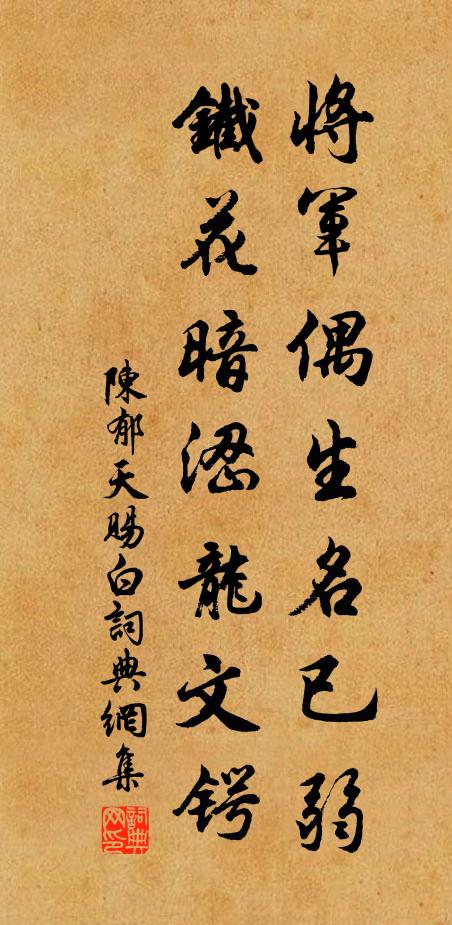 將軍偶生名已弱
鐵花暗澀龍文鍔
陳郁天賜白詞典網集
詞典
网印